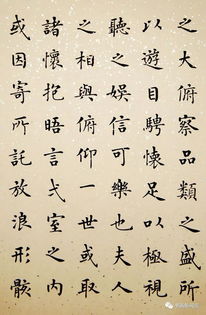 之大俯察品類之盛所
以遊目騁懷足以極視
聽之娛信可樂也夫人
之相與俯仰一世或取
諸懷抱晤言弌室之內
或因寄所託放浪形骸